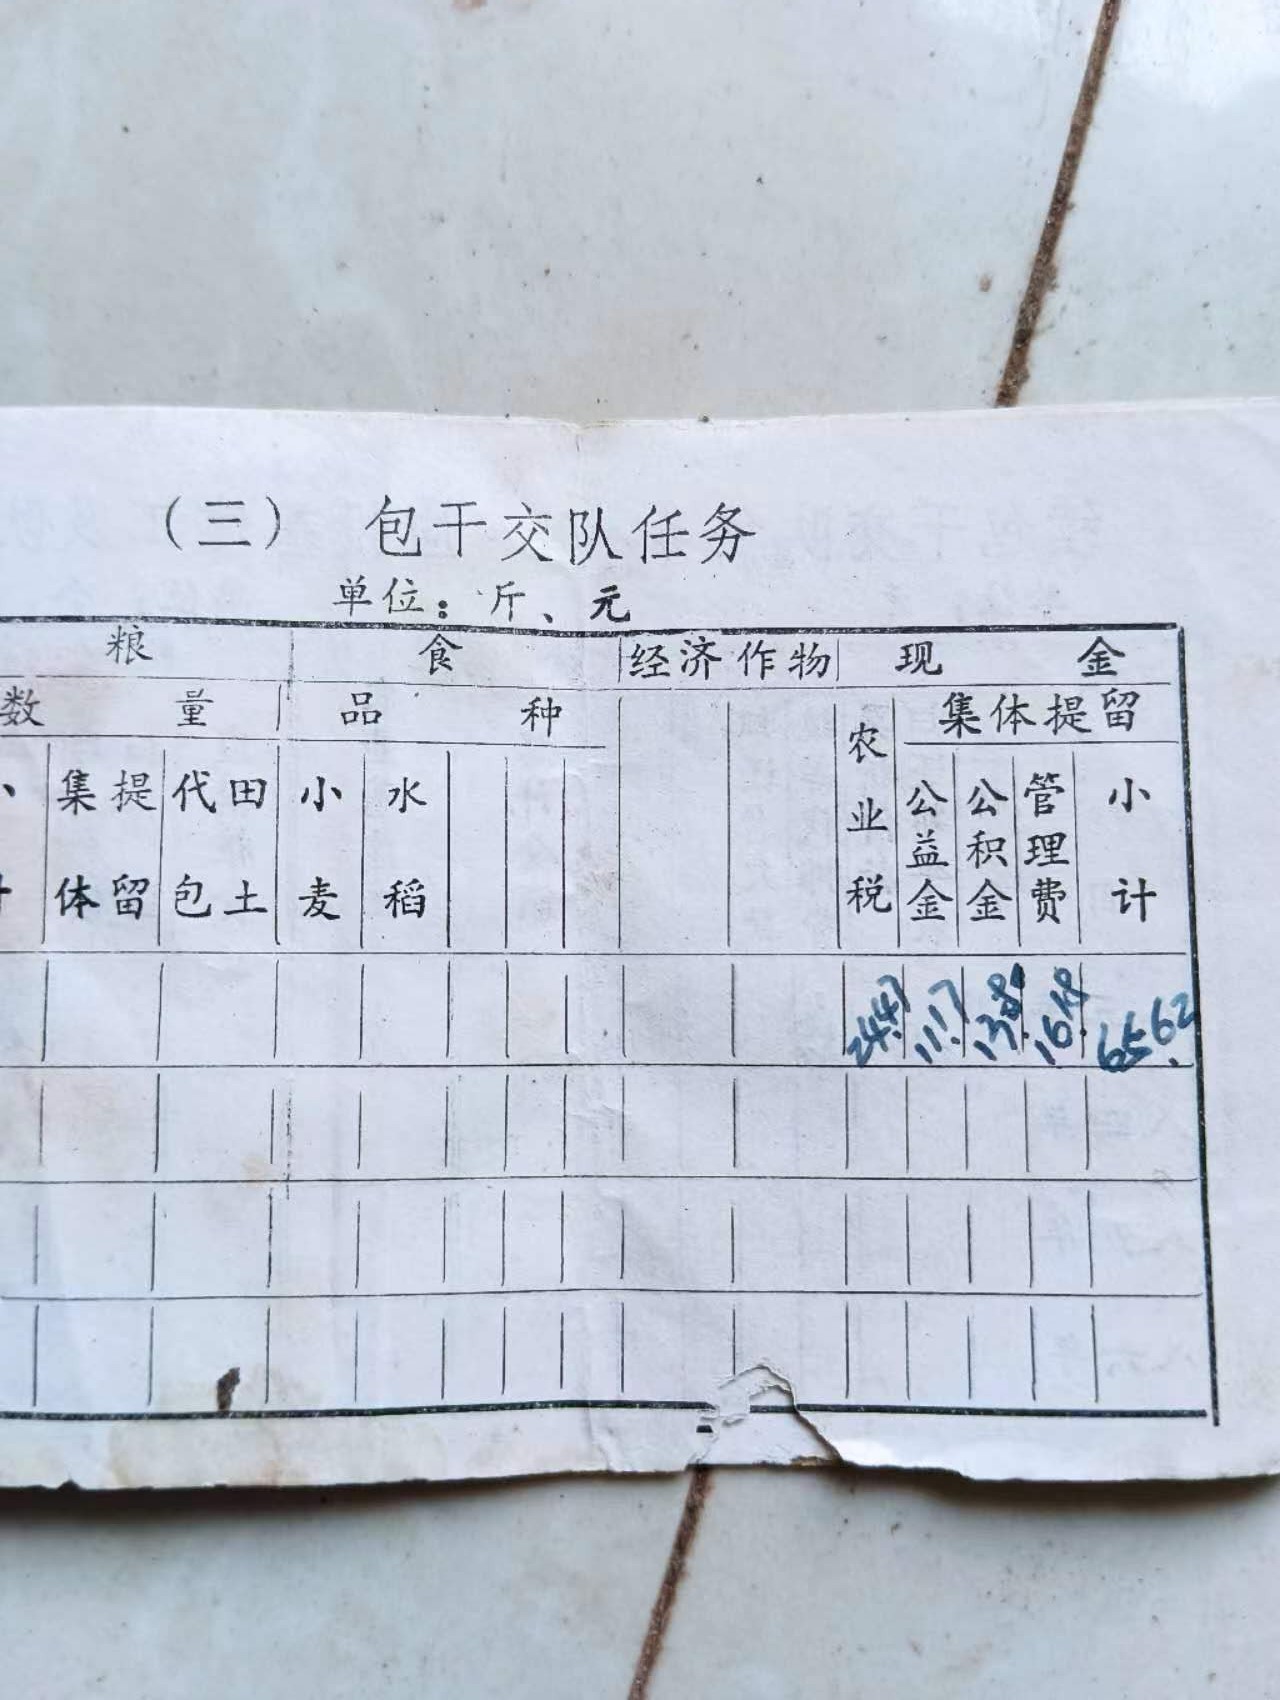 （三） 包干交队任务
单位：斤、元
粮 食 经济作物 现 金
数 量 品 种 农业税 集体提留
集体提留 代包田土 小麦 水稻 公益金 公积金 管理费 小计
24.47 11.17 13.8 16.18 65.62